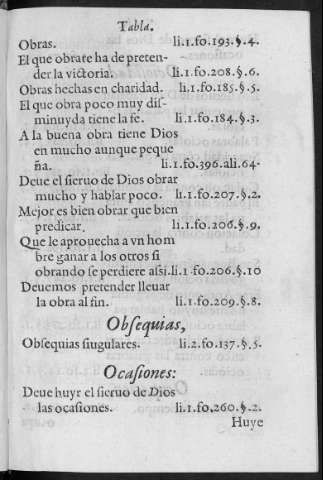 Tabla.
Obras. li.1.fo.193.§.4.
El que obrate ha de preten-
der la victoria. li.1.fo.208.§.6.
Obras hechas en charidad. li.1.fo.185.§.5.
El que obra poco muy dis-
minuyda tiene la fe. li.1.fo.184.§.3.
A la buena obra tiene Dios
en mucho aunque peque
ña. li.1.fo.396.ali.64.
Deue el sieruo de Dios obrar
mucho y hablar poco. li.1.fo.207.§.2.
Mejor es bien obrar que bien
predicar. li.1.fo.206.§.9.
Que le aprouecha a vn hom
bre ganar a los otros si
obrando se perdiere assi. li.1.fo.206.§.10
Deuemos pretender lleuar
la obra al fin. li.1.fo.209.§.8.
Obsequias,
Obsequias siugulares. li.2.fo.137.§.5.
Ocasiones:
Deue huyr el sieruo de Dios
las ocasiones. li.1.fo.260.§.2.
Huye